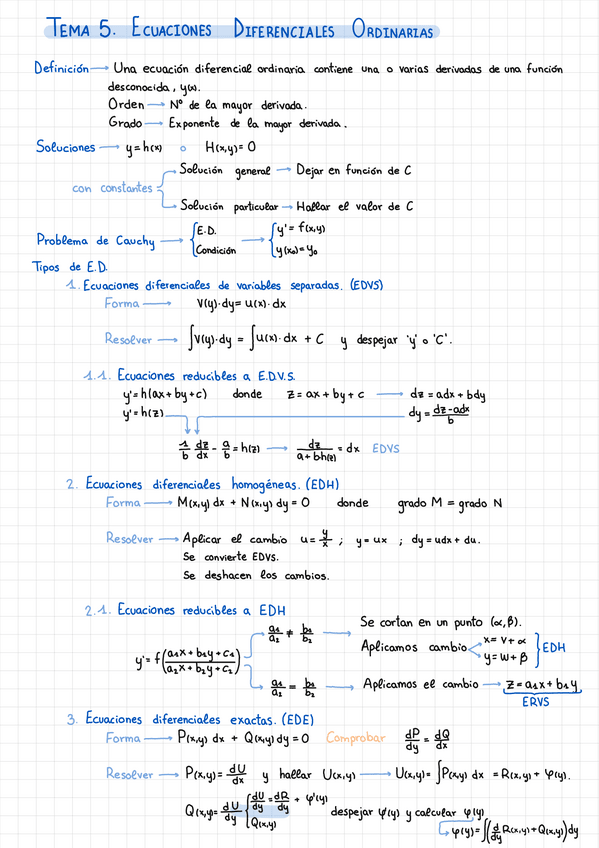 TEMA 5. ECUACIONES DIFERENCIALES ORDINARIAS
Definición → Una ecuación diferencial ordinaria contiene una o varias derivadas de una función
desconocida, y(x).
Orden → Nº de la mayor derivada.
Grado → Exponente de la mayor derivada.
Soluciones → y=h(x) o H(x,y)=0
con constantes { Solución general → Dejar en función de C
Solución particular → Hallar el valor de C
Problema de Cauchy → { E.D. Condición → { y'=f(x,y) y(x₀)=y₀
Tipos de E.D.
1. Ecuaciones diferenciales de variables separadas. (EDVS)
Forma → V(y)·dy=u(x)·dx
Resolver → ∫V(y)·dy = ∫u(x)·dx + C y despejar 'y' o 'C'.
1.1. Ecuaciones reducibles a E.D.V.S.
y'=h(ax+by+c) donde z=ax+by+c → dz=adx+bdy
y'=h(z) dy=(dz-adx)/b
1/b dz/dx - a/b = h(z) → dz/(a+bh(z)) = dx EDVS
2. Ecuaciones diferenciales homogéneas. (EDH)
Forma → M(x,y) dx + N(x,y) dy = 0 donde grado M = grado N
Resolver → Aplicar el cambio u=y/x ; y=ux ; dy=udx+du.
Se convierte EDVS.
Se deshacen los cambios.
2.1. Ecuaciones reducibles a EDH
y'=f((a₁x+b₁y+c₁)/(a₂x+b₂y+c₂))
a₁/a₂ ≠ b₁/b₂ → Se cortan en un punto (α,β).
Aplicamos cambio x=V+α y=W+β } EDH
a₁/a₂ = b₁/b₂ → Aplicamos el cambio → z=a₁x+b₁y
ERVS
3. Ecuaciones diferenciales exactas. (EDE)
Forma → P(x,y) dx + Q(x,y) dy = 0 Comprobar dP/dy = dQ/dx
Resolver → P(x,y)=dU/dx y hallar U(x,y) → U(x,y)=∫P(x,y) dx = R(x,y) + φ(y).
Q(x,y)=dU/dy { dU/dy = dR/dy + φ'(y) Q(x,y) despejar φ'(y) y calcular φ(y)
φ(y)=∫(d/dy R(x,y)+Q(x,y))dy